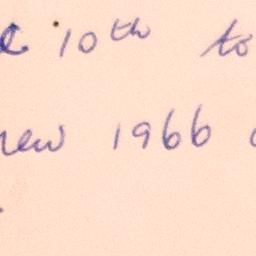 10th to
new 1966